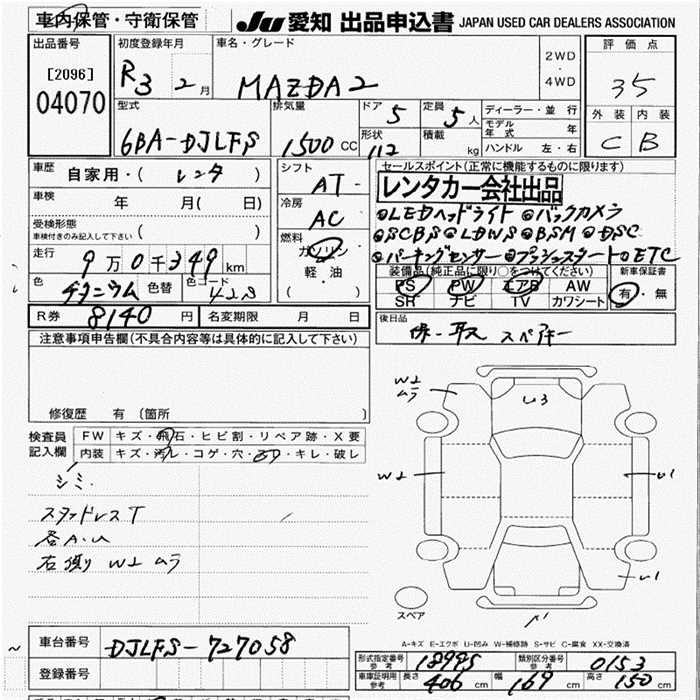 車内保管・守衛保管
JU 愛知 出品申込書 JAPAN USED CAR DEALERS ASSOCIATION
出品番号
[2096]
04070
初度登録年月
R3 2月
車名・グレード
MAZDA2
2WD・4WD
評価点
35
型式
6BA-DJLFS
排気量
1500 CC
ドア 5
定員 5人
形状
積載 kg
ディーラー・並行
モデル年式 年
ハンドル 左・右
外装 内装
C B
車歴 自家用・(レンタ)
車検 年 月(日)
受検形態
車検付きのみ記入して下さい ( )
走行 9万0千349km
色 チタニウム 色替 色コード 42S
R券 8140円 名変期限 月 日
シフト AT
冷房 AC
燃料 ガソリン・軽・油 ( )
セールスポイント(正常に機能するものに限ります)
レンタカー会社出品
◎LEDヘッドライト ◎バックカメラ
◎SCBS ◎LDWS ◎BSM ◎DSC
◎パーキングセンサー ◎プッシュスタート ◎ETC
装備品(純正品に限り○をつけてください)
PS PW エアB AW
SR ナビ TV カワシート
新車保証書
有・無
後日品
保・取 スペアキー
注意事項申告欄(不具合内容等は具体的に記入して下さい)
修復歴 有(箇所 )
検査員記入欄
FW キズ・飛石・ヒビ割・リペア跡・X要
内装 キズ・汚レ・コゲ・穴・スレ・キレ・破レ
シミ
スタッドレスT
各A.U
右側 W2 ムラ
W2
ムラ
U3
W2
U1
U1
スペア
A-キズ E-エクボ U-凹み W-補修跡 S-サビ C-腐食 XX-交換済
車台番号 DJLFS-727058
登録番号
形式指定番号 参考 18995 類別区分番号 参考 0153
車庫証明用 参考 長さ 406cm 幅 169cm 高さ 150cm